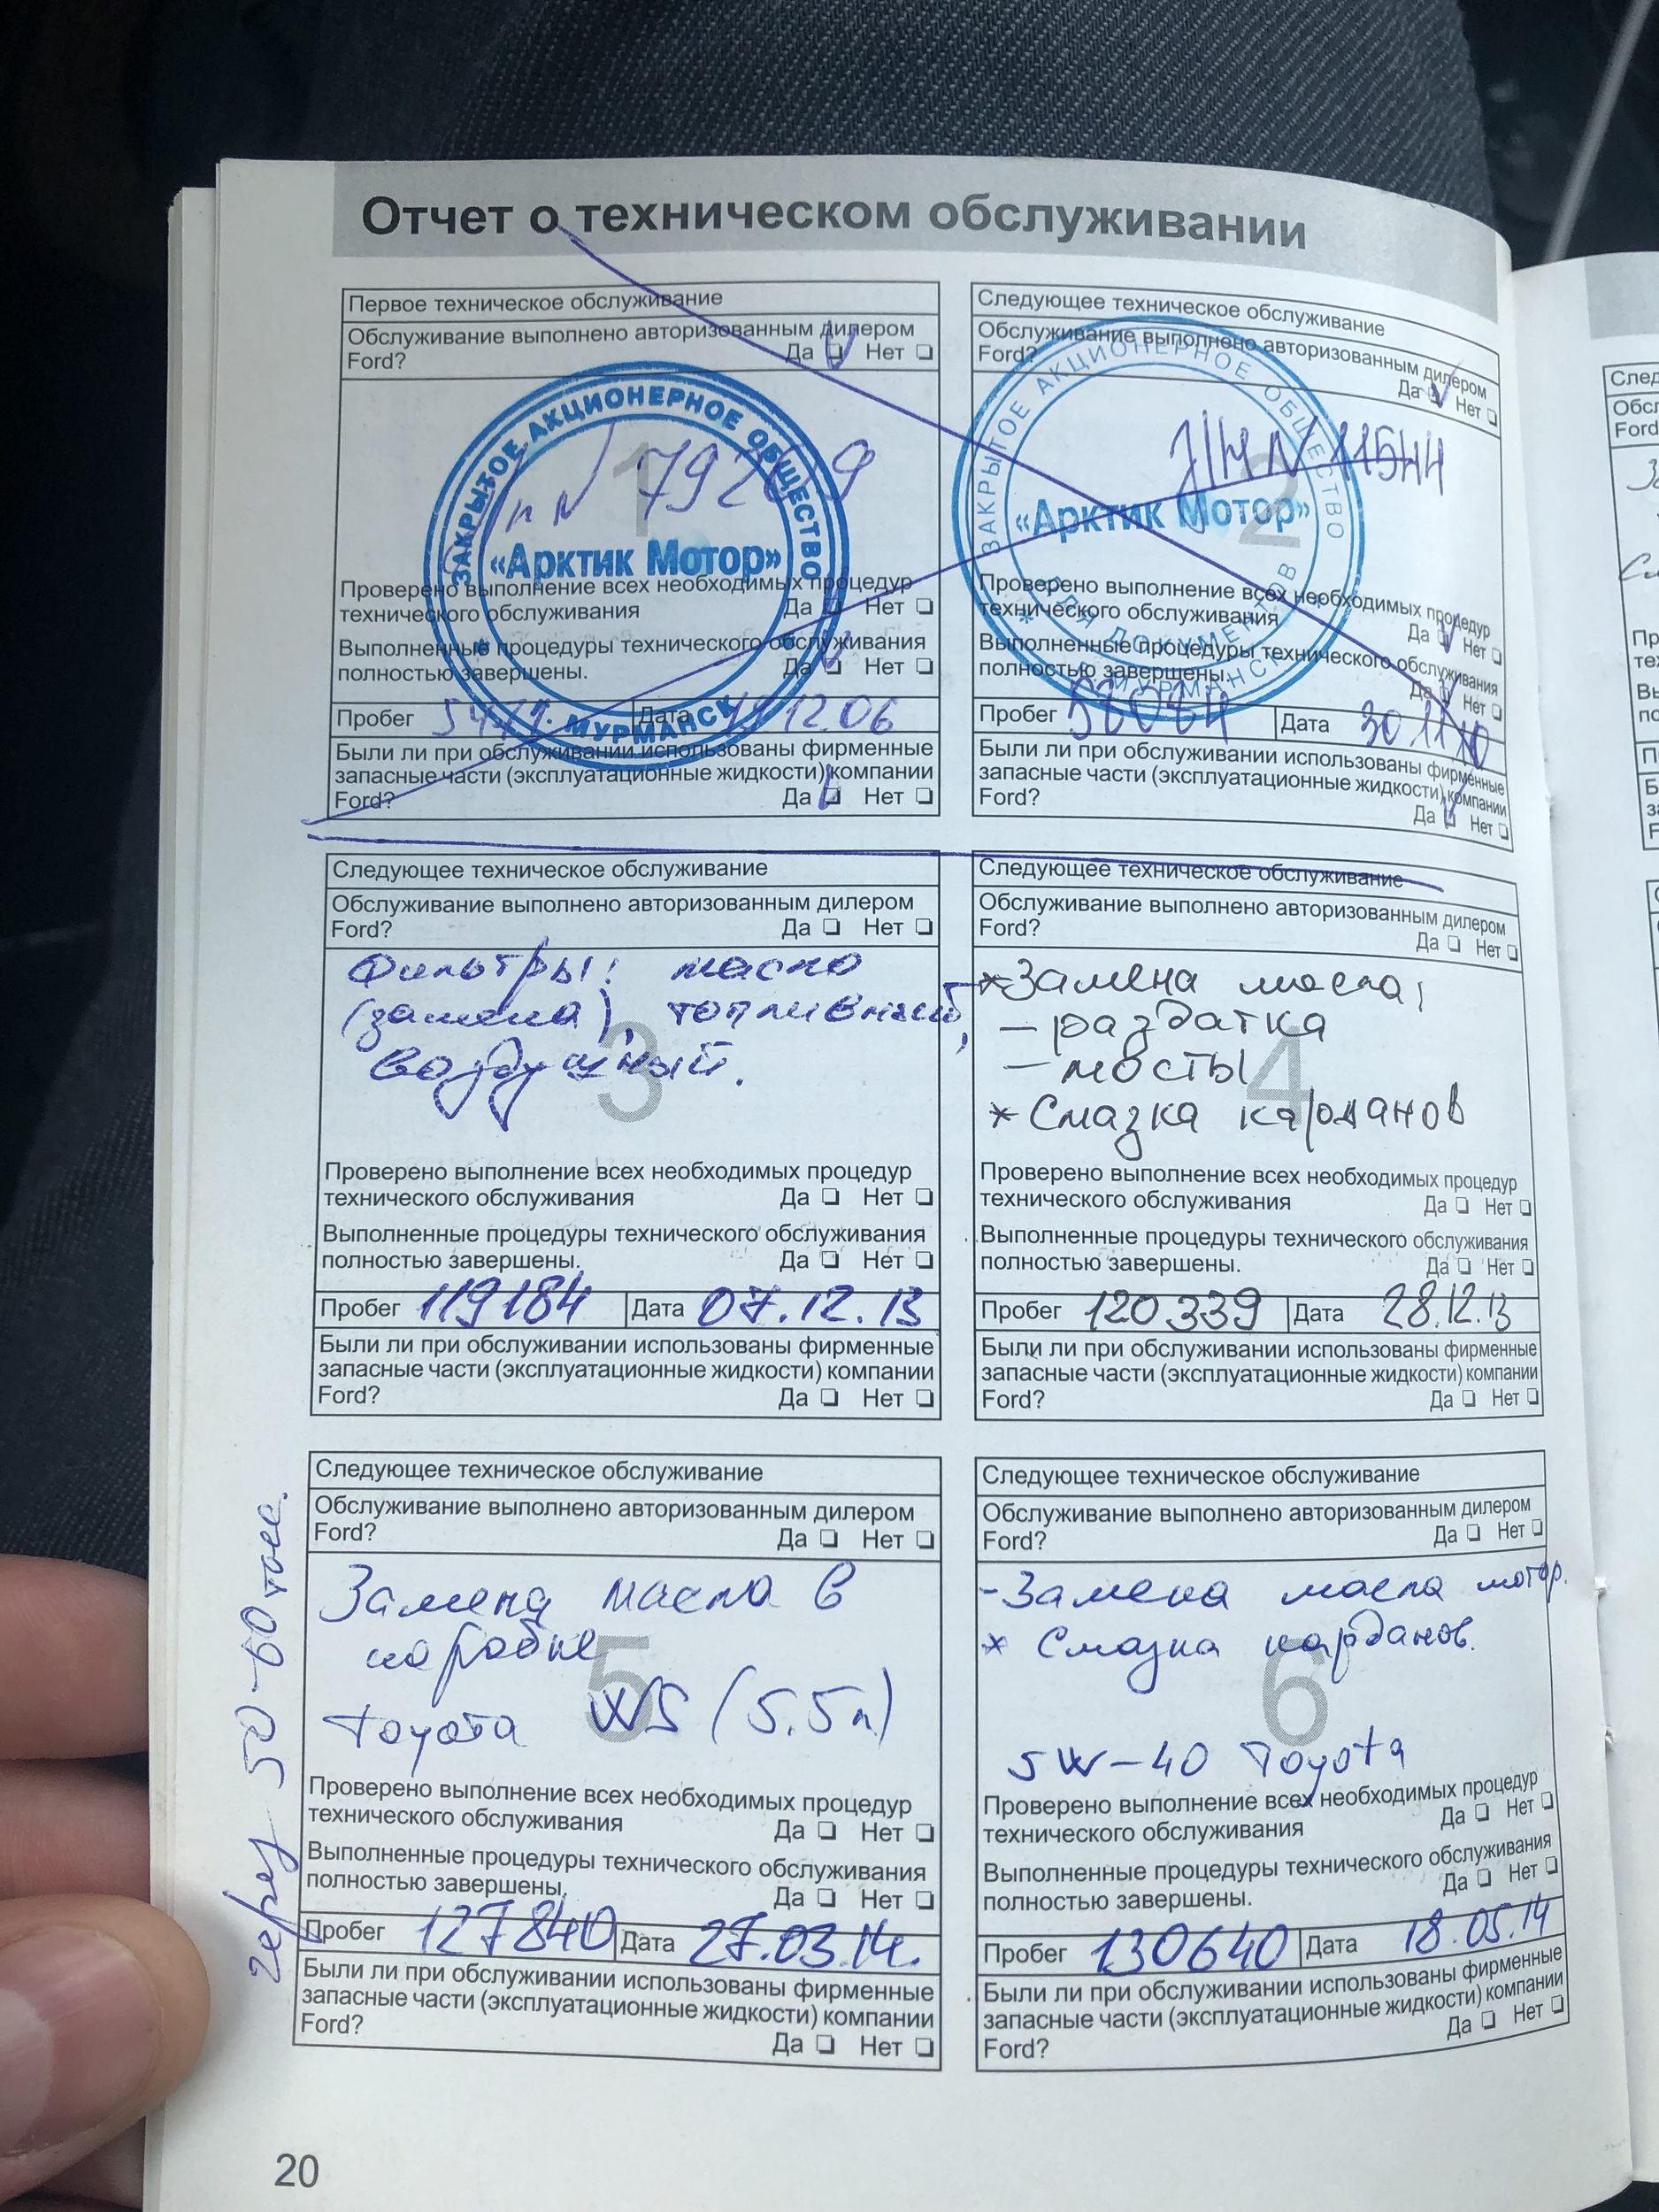 Отчет о техническом обслуживании
Первое техническое обслуживание
Обслуживание выполнено авторизованным дилером
Ford? Да ❏ Нет ❏
1
ЗАКРЫТОЕ АКЦИОНЕРНОЕ ОБЩЕСТВО
«Арктик Мотор»
г. МУРМАНСК
Проверено выполнение всех необходимых процедур
технического обслуживания Да ❏ Нет ❏
Выполненные процедуры технического обслуживания
полностью завершены. Да ❏ Нет ❏
Пробег Дата 12.06
Были ли при обслуживании использованы фирменные
запасные части (эксплуатационные жидкости) компании
Ford? Да ❏ Нет ❏
Следующее техническое обслуживание
Обслуживание выполнено авторизованным дилером
Ford? Да ❏ Нет ❏
2
ЗАКРЫТОЕ АКЦИОНЕРНОЕ ОБЩЕСТВО
«Арктик Мотор»
ДЛЯ ДОКУМЕНТОВ
МУРМАНСК
Проверено выполнение всех необходимых процедур
технического обслуживания Да ❏ Нет ❏
Выполненные процедуры технического обслуживания
полностью завершены. Да ❏ Нет ❏
Пробег Дата 30.11.10
Были ли при обслуживании использованы фирменные
запасные части (эксплуатационные жидкости) компании
Ford? Да ❏ Нет ❏
Следующее техническое обслуживание
Обслуживание выполнено авторизованным дилером
Ford? Да ❏ Нет ❏
Фильтры: масло
(замена), топливный,
воздушный.
3
Проверено выполнение всех необходимых процедур
технического обслуживания Да ❏ Нет ❏
Выполненные процедуры технического обслуживания
полностью завершены. Да ❏ Нет ❏
Пробег 119184 Дата 07.12.13
Были ли при обслуживании использованы фирменные
запасные части (эксплуатационные жидкости) компании
Ford? Да ❏ Нет ❏
Следующее техническое обслуживание
Обслуживание выполнено авторизованным дилером
Ford? Да ❏ Нет ❏
* Замена масла;
– раздатка
– мосты
* Смазка карданов
4
Проверено выполнение всех необходимых процедур
технического обслуживания Да ❏ Нет ❏
Выполненные процедуры технического обслуживания
полностью завершены. Да ❏ Нет ❏
Пробег 120339 Дата 28.12.13
Были ли при обслуживании использованы фирменные
запасные части (эксплуатационные жидкости) компании
Ford? Да ❏ Нет ❏
Следующее техническое обслуживание
Обслуживание выполнено авторизованным дилером
Ford? Да ❏ Нет ❏
Замена масла в
коробке
Toyota WS (5.5л)
5
Проверено выполнение всех необходимых процедур
технического обслуживания Да ❏ Нет ❏
Выполненные процедуры технического обслуживания
полностью завершены. Да ❏ Нет ❏
Пробег 127840 Дата 27.03.14.
Были ли при обслуживании использованы фирменные
запасные части (эксплуатационные жидкости) компании
Ford? Да ❏ Нет ❏
через 50-60 тыс.
Следующее техническое обслуживание
Обслуживание выполнено авторизованным дилером
Ford? Да ❏ Нет ❏
- Замена масла мотор.
* Смазка карданов.
5W-40 Toyota
6
Проверено выполнение всех необходимых процедур
технического обслуживания Да ❏ Нет ❏
Выполненные процедуры технического обслуживания
полностью завершены. Да ❏ Нет ❏
Пробег 130640 Дата 18.05.14
Были ли при обслуживании использованы фирменные
запасные части (эксплуатационные жидкости) компании
Ford? Да ❏ Нет ❏
20